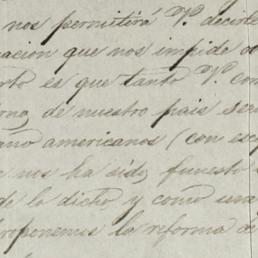 nos permitirá V. decirle
nacion que nos impide
rto es que tanto V. con
de nuestro pais
ano americanos (con
nos ha sido, funesto
de lo dicho y como una
proponemos la reforma de